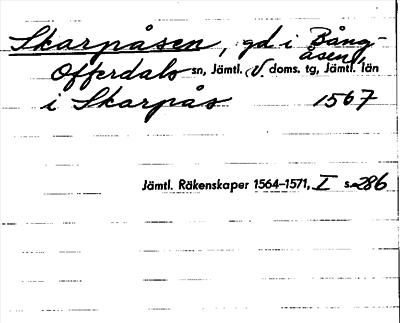 Skarpåsen, gd i Bång-
åsen,
Offerdals sn, Jämtl. V. doms. tg, Jämtl. län
i Skarpås 1567
Jämtl. Räkenskaper 1564–1571, I s. 286